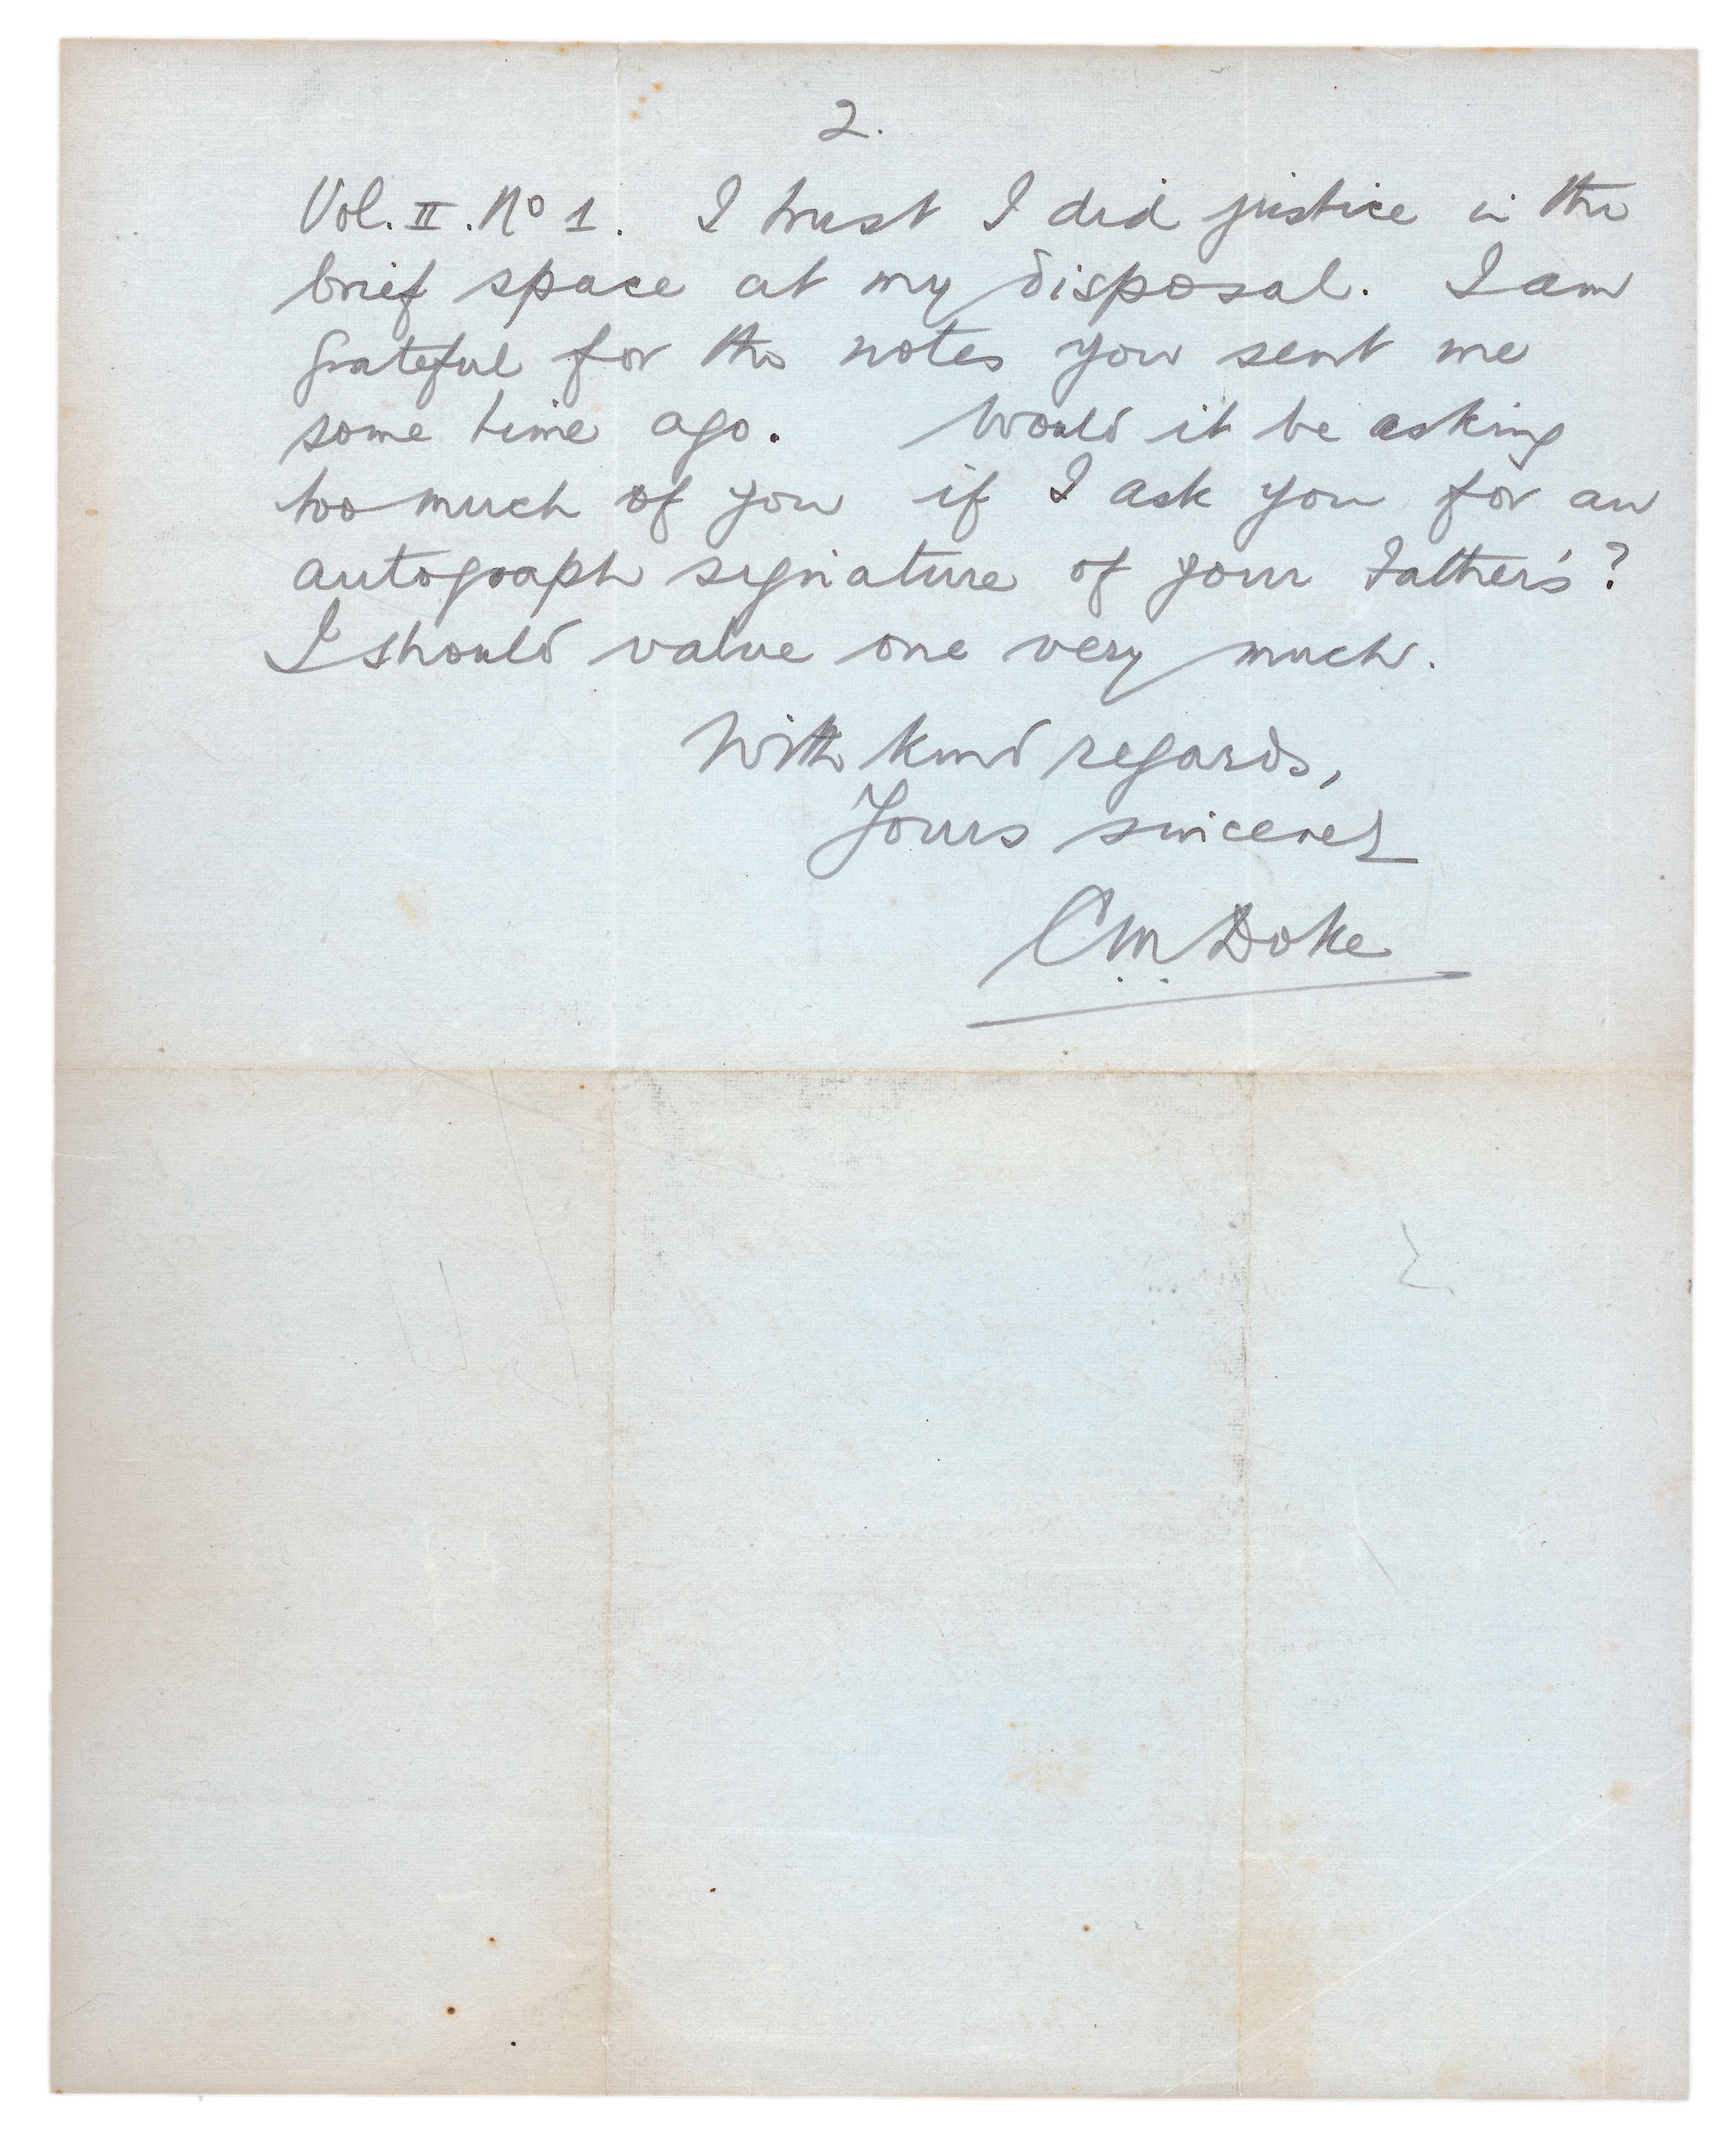 2.
Vol. II. No 1. I trust I did justice in the
brief space at my disposal. I am
grateful for the notes you sent me
some time ago. Would it be asking
too much of you if I ask you for an
autograph signature of your Father's?
I should value one very much.
With kind regards,
Yours sincerely
C.M. Doke